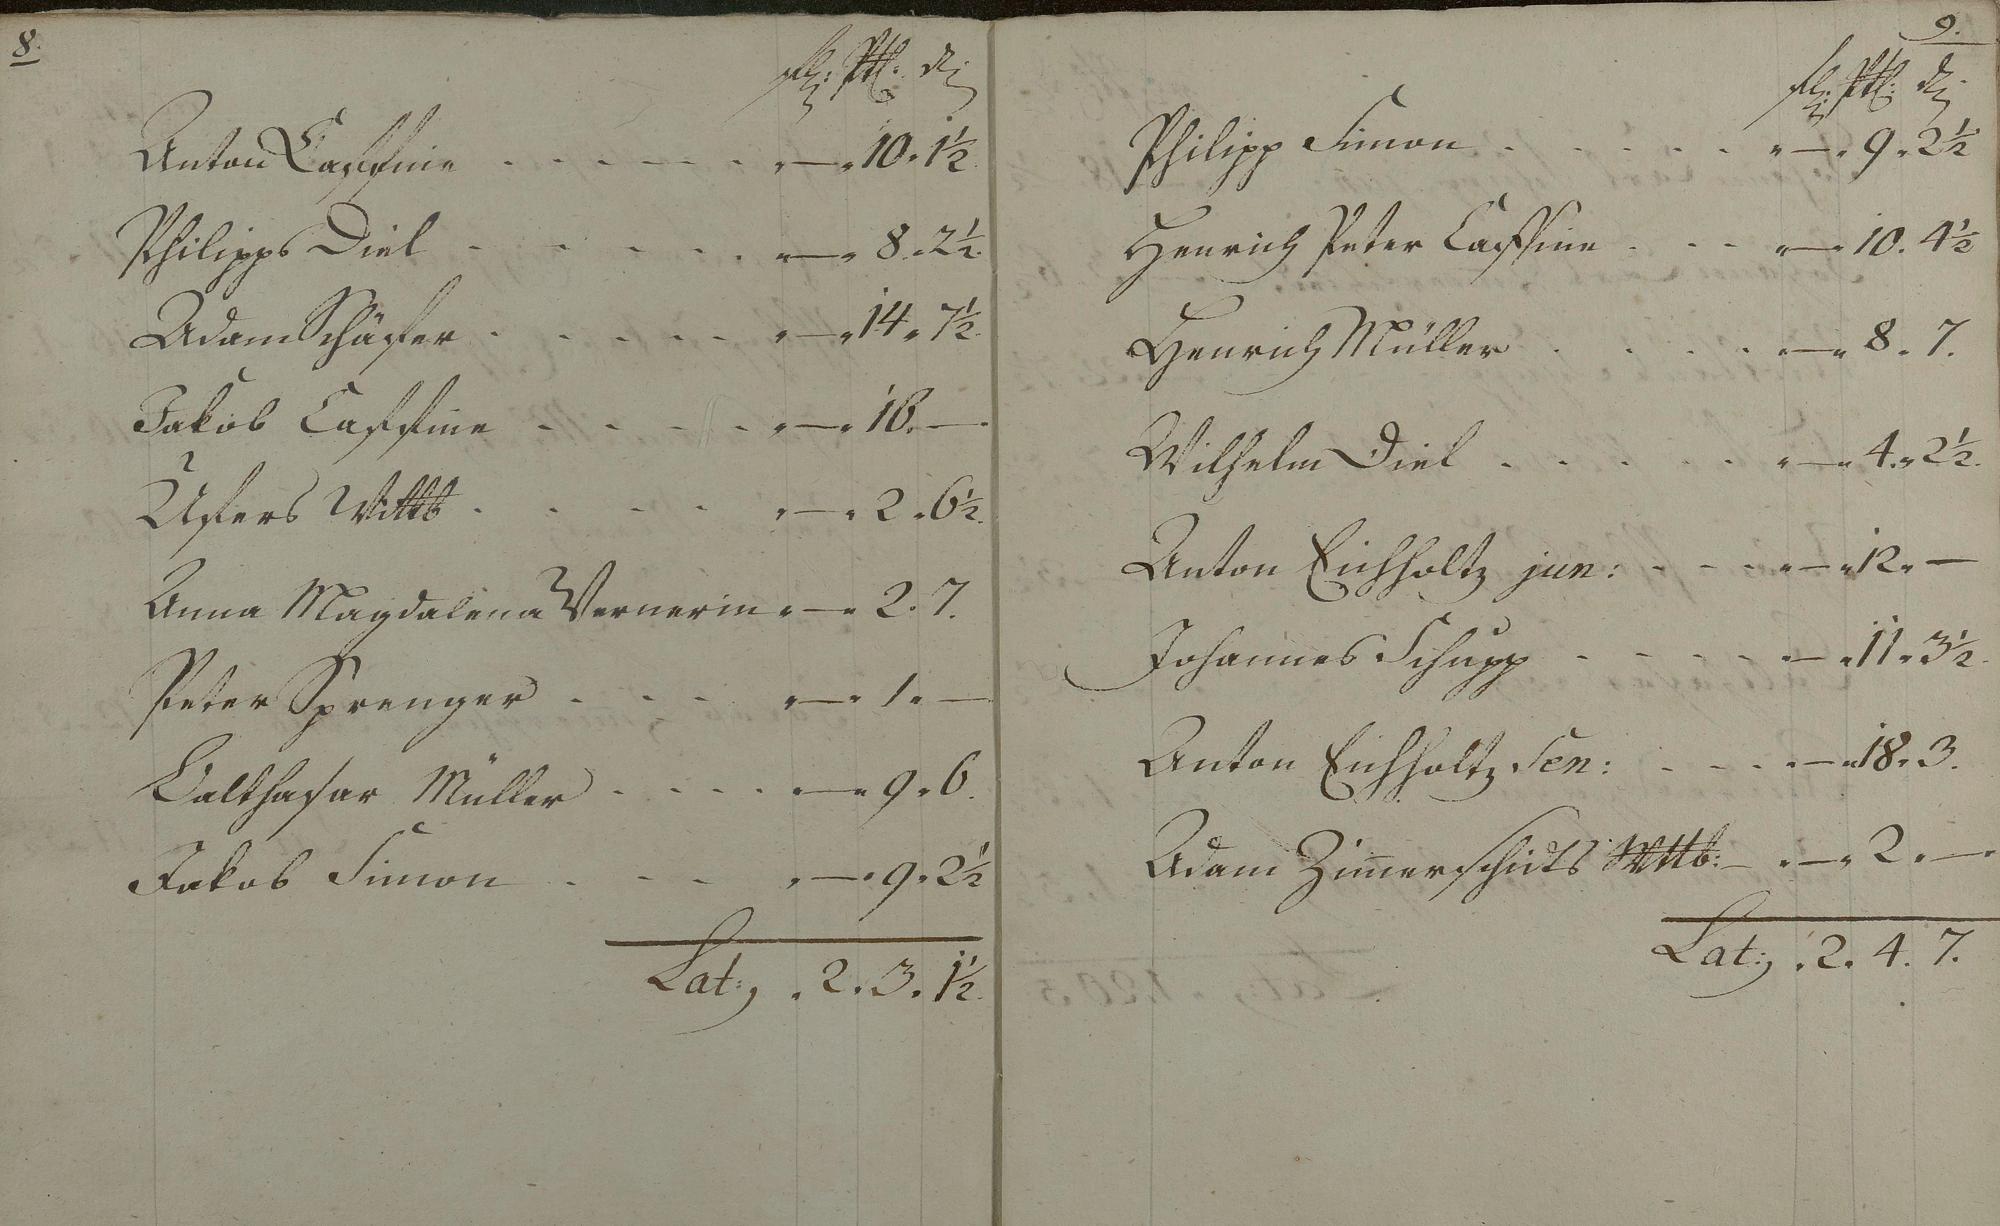 8.
fl: d:
Anton Caffine . . . . . . . " — " 10 . 1½
Philipps Diel . . . . " — " 8 . 2½.
Adam Schäfer . . . . . " — " 14 " 7½.
Jakob Caffine . . . . " — " 16. —
Ufers Wittb . . . . " — " 2 " 6½.
Anna Magdalena Wernerin " — " 2 . 7.
Peter Sprenger . . . " — " 1 " —
Balthasar Müller . . . . " — " 9 " 6.
Jakob Simon . . . " — " 9 " 2½
Lat: . 2 . 3 . 1½.
9.
fl: d:
Philipp Simon . . . . . " — " 9 " 2½
Henrich Peter Caffine . . . " — " 10 . 4½
Henrich Müller . . . . " — " 8 " 7.
Wilhelm Diel . . . . . " — " 4 " 2½.
Anton Eichholtz jun: . . . " — " 12 " —
Johannes Schupp . . . . . " — " 11 " 3½.
Anton Eichholtz Sen: . . . " — " 18 " 3.
Adam Zim̅erschidts Wttb: — " — " 2 " —
Lat: . 2 . 4 . 7.